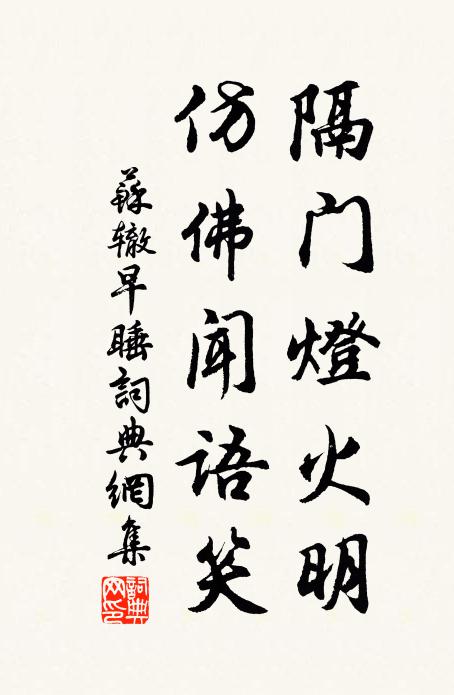 隔门燈火明
仿佛闻语笑
蘇辙早睡詞典網集
詞典网印